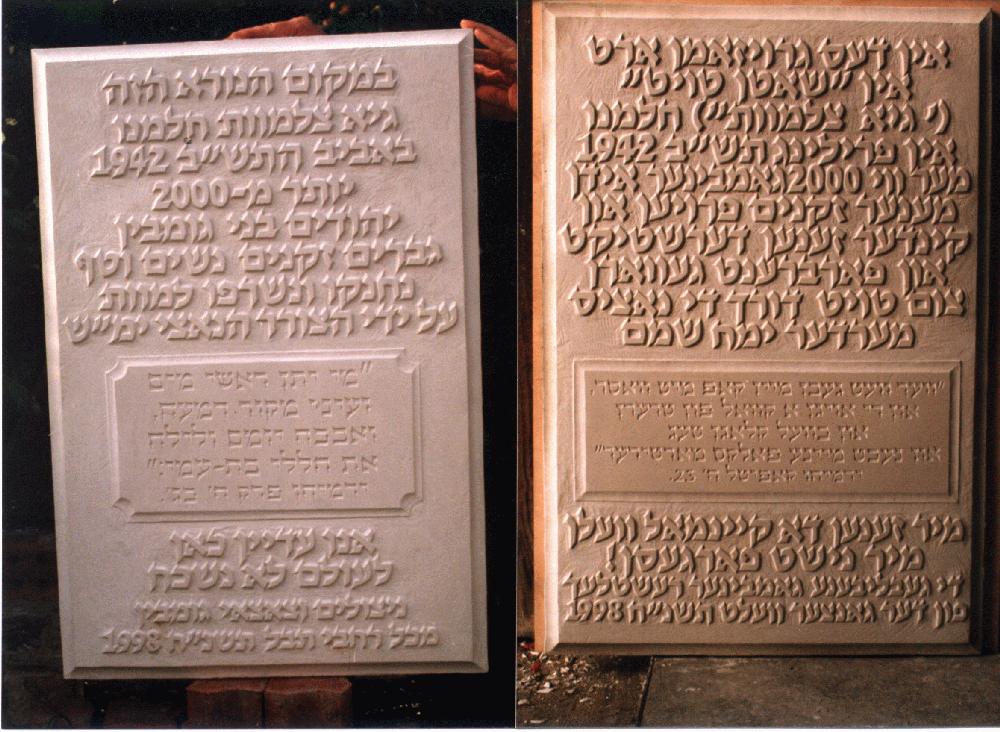 במקום הנורא הזה
גיא צלמוות חלמנו
באביב התש״ב 1942
יותר מ-2000
יהודים בני גומבין
גברים זקנים נשים וטף
נחנקו ונשרפו למוות
על ידי הצורר הנאצי ימ״ש
״מי יתן ראשי מים
ועיני מקור דמעה,
ואבכה יומם ולילה
את חללי בת-עמי:״
ירמיהו פרק ח׳ כג׳.
אנו עדיין כאן
לעולם לא נשכח
ניצולים וצאצאי גומבין
מכל רחבי תבל תשנ״ח 1998
אין דעם גרויזאמן ארט
אין ״שאטן טויט״
(״גיא צלמוות״) חלמנו
אין פרילינג תש״ב 1942
מער ווי 2000 גאמבינער אידן
מענער זקנים פרויען און
קינדער זענען דערשטיקט
און פארברענט געווארן
צום טויט דורך די נאציס
מערדער ימח שמם
״ווער וועט געבן מיין קאפ מיט וואסר,
און די אויגן א קוואל פון טרערן
און כוועל קלאגן טעג
און נעכט מיינע פאלקס מארטירער״
ירמיהו קאפיטל ח׳ 23.
מיר זענען דא קיינמאל וועלן
מיר נישט פארגעסן!
די געבליבענע גאמבינער רעשטלעך
פון דער גאנצער וועלט תשנ״ח 1998